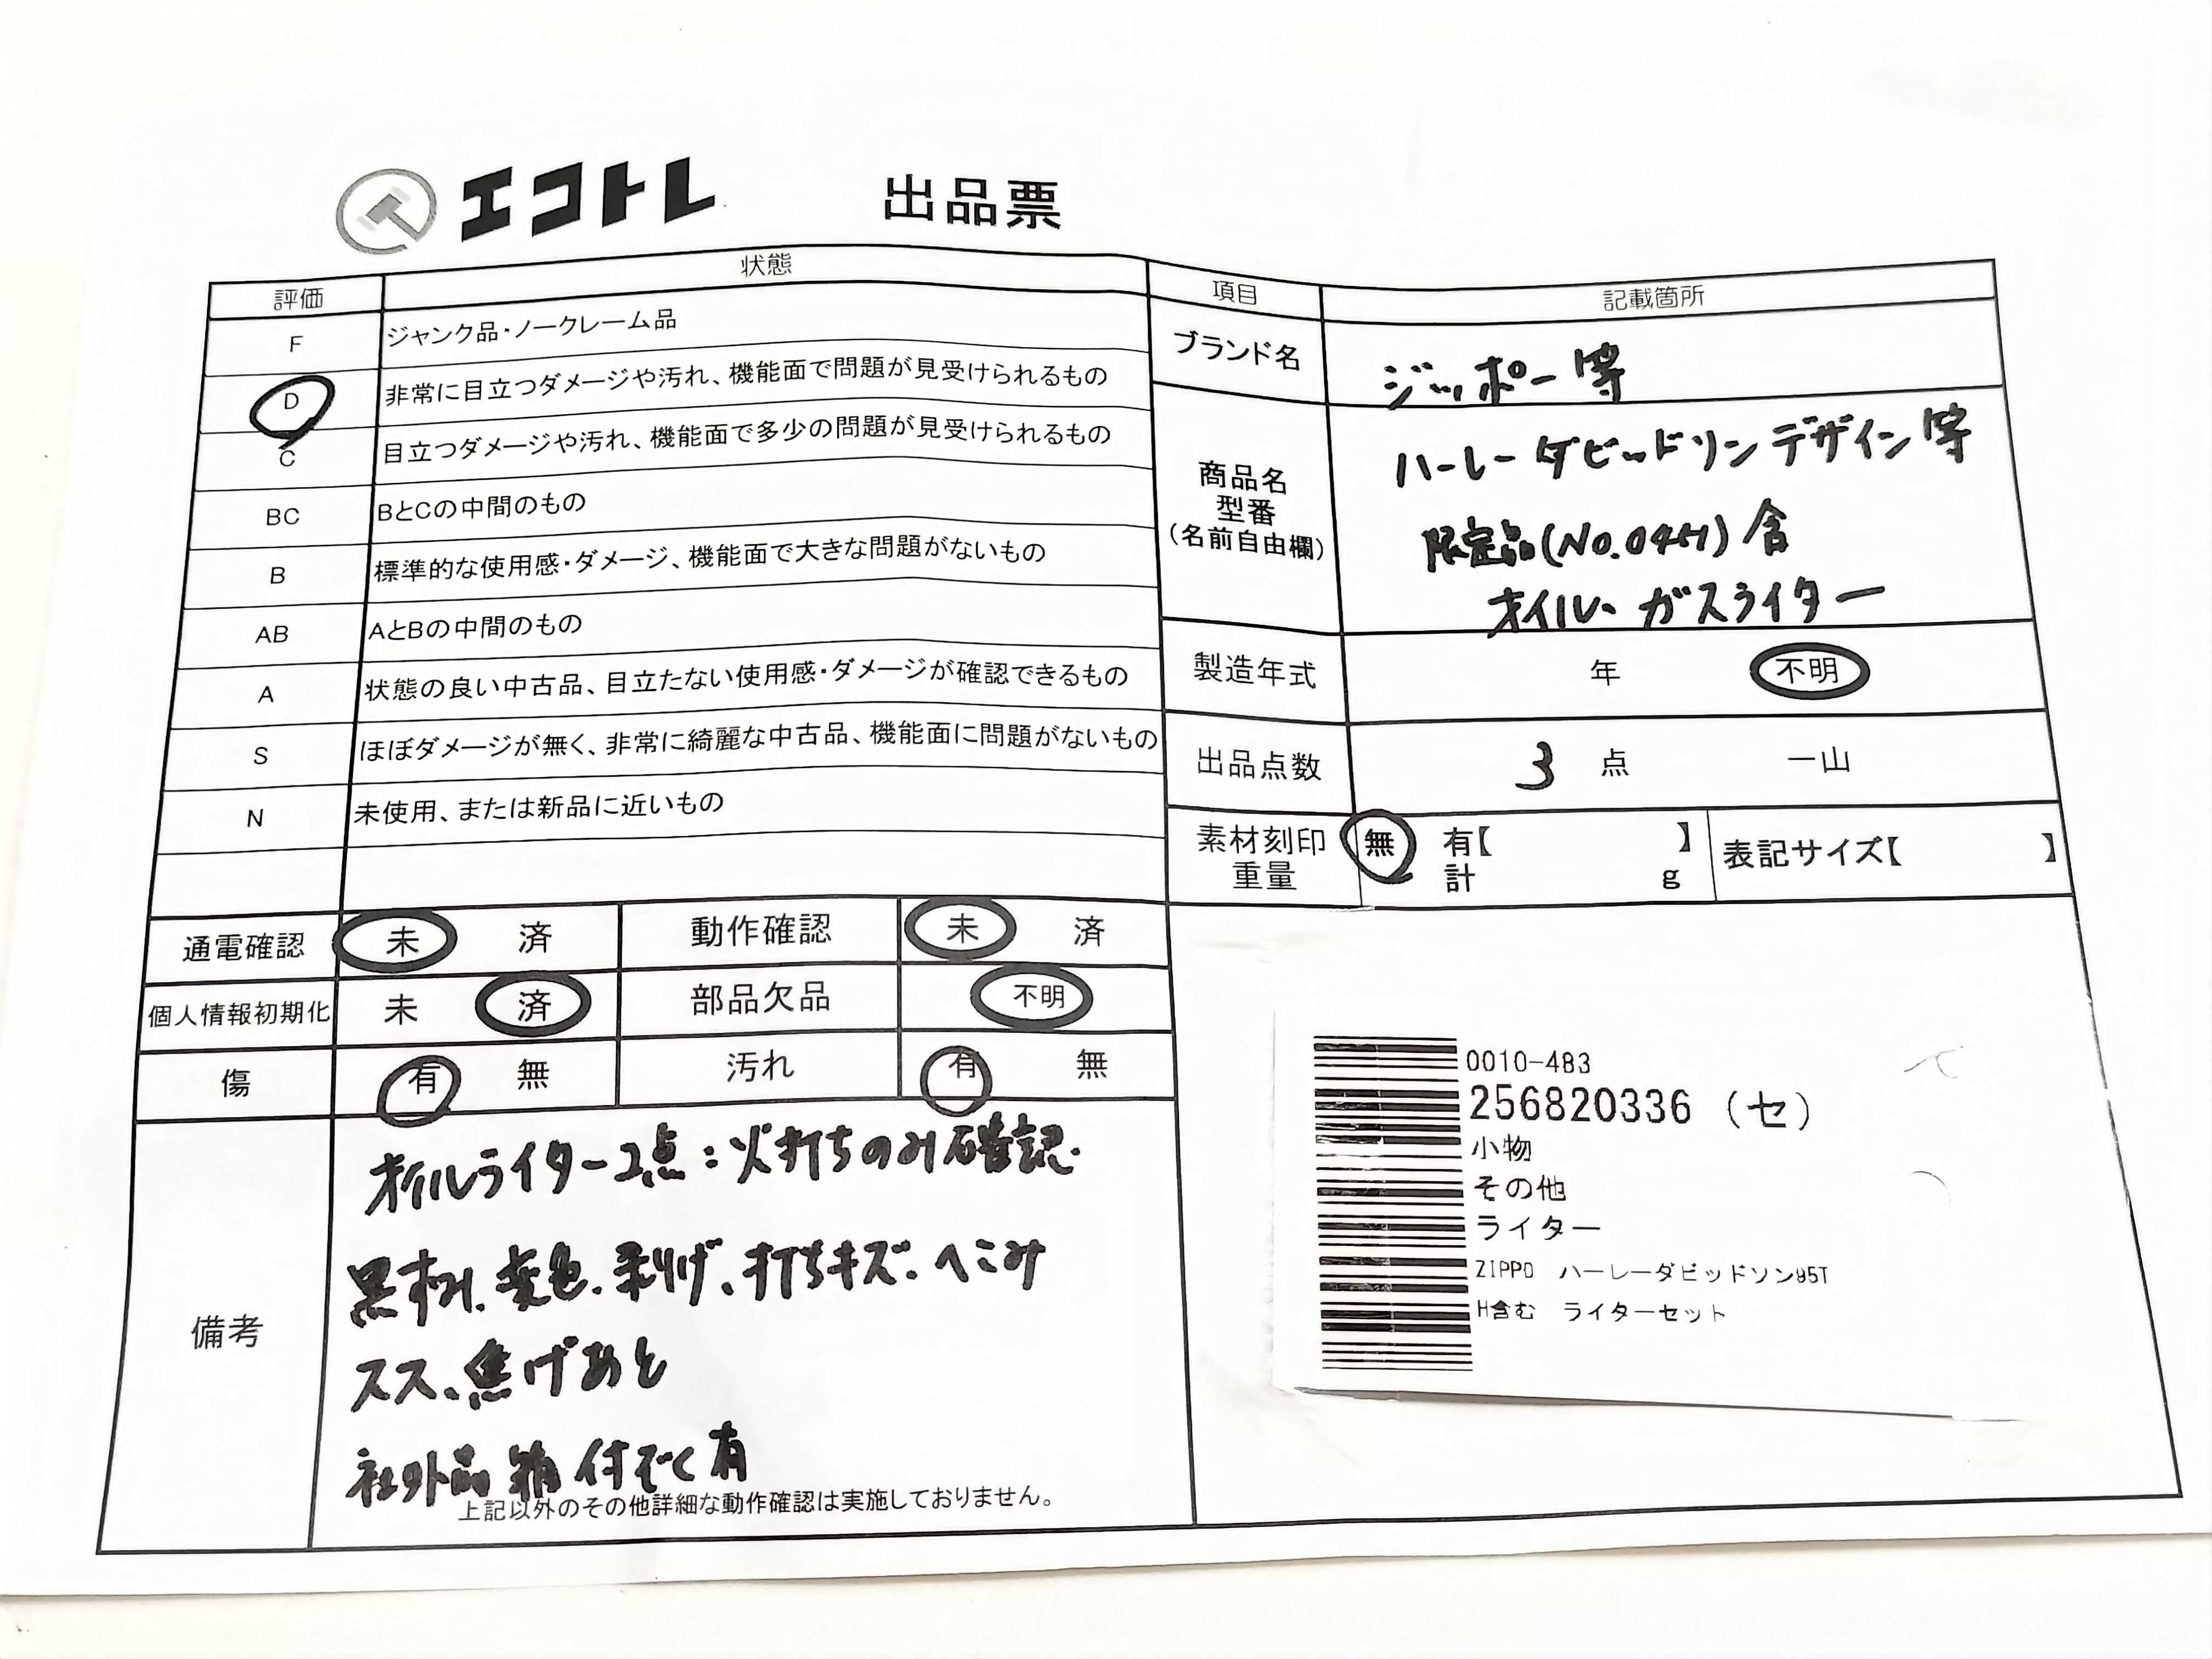 エコトレ 出品票
評価 状態
F ジャンク品・ノークレーム品
D 非常に目立つダメージや汚れ、機能面で問題が見受けられるもの
C 目立つダメージや汚れ、機能面で多少の問題が見受けられるもの
BC BとCの中間のもの
B 標準的な使用感・ダメージ、機能面で大きな問題がないもの
AB AとBの中間のもの
A 状態の良い中古品、目立たない使用感・ダメージが確認できるもの
S ほぼダメージが無く、非常に綺麗な中古品、機能面に問題がないもの
N 未使用、または新品に近いもの
項目 記載箇所
ブランド名 ジッポー等
商品名
型番
(名前自由欄)
ハーレーダビッドソンデザイン等
限定品(No. 含
オイル、ガスライター
製造年式 年 不明
出品点数 3 点 一山
素材刻印 無 有【 】 表記サイズ【 】
重量 計 g
通電確認 未 済 動作確認 未 済
個人情報初期化 未 済 部品欠品 不明
傷 有 無 汚れ 有 無
備考
オイルライター2点:火打ちのみ確認.
黒ずみ、変色、剥げ、打ちキズ、へこみ
スス、焦げあと
社外品箱付ぞく有
上記以外のその他詳細な動作確認は実施しておりません。
0010-483
256820336 (セ)
小物
その他
ライター
ZIPPO ハーレーダビッドソン95T
H含む ライターセット